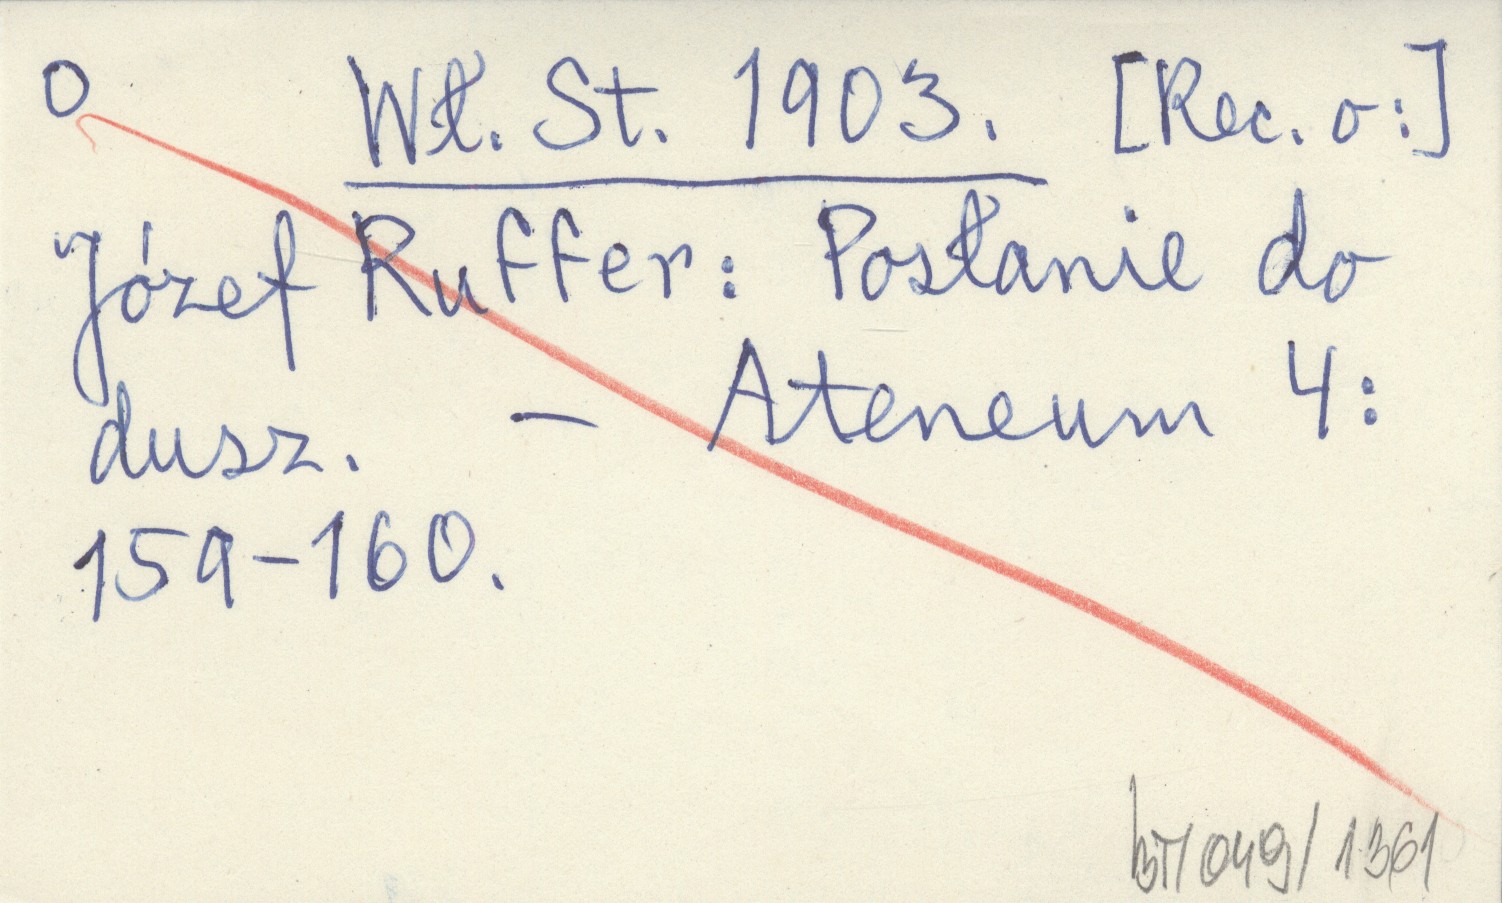 O Wł. St. 1903. [Rec. o:]
Józef Ruffer: Posłanie do
dusz. – Ateneum 4:
159–160.
bT/049/1361